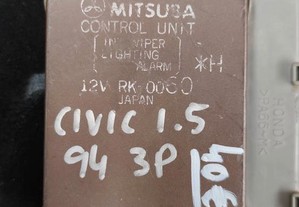 MITSUBA
CONTROL UNIT
INT WIPER
LIGHTING
ALARM
*H
12V RK-0060
JAPAN
CIVIC 1.5
94 3P
40€